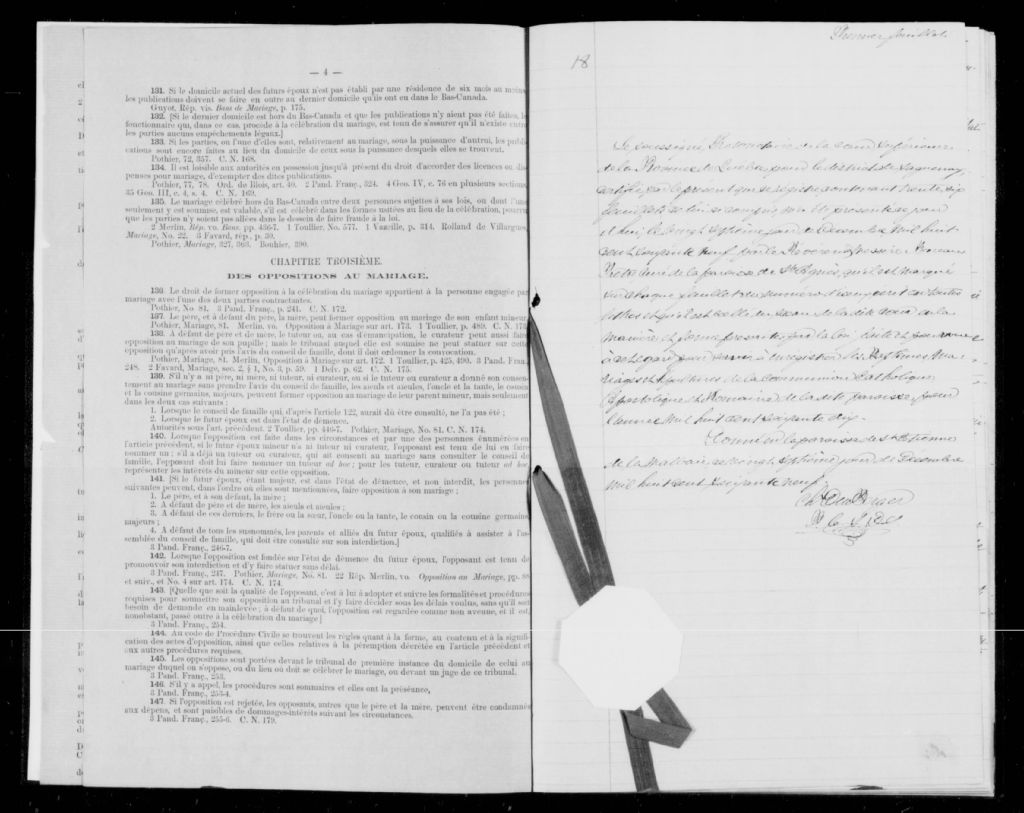 — 4 —
131. Si le domicile actuel des futurs époux n'est pas établi par une résidence de six mois au moins
les publications doivent se faire en outre au dernier domicile qu'ils ont eu dans le Bas-Canada.
Guyot, Rép. vis. Bans de Mariage, p. 175.
132. [Si le dernier domicile est hors du Bas-Canada et que les publications n'y aient pas été faites, le
fonctionnaire qui, dans ce cas, procède à la célébration du mariage, est tenu de s'assurer qu'il n'existe entre
les parties aucun empêchements légaux.]
133. Si les parties, ou l'une d'elles sont, relativement au mariage, sous la puissance d'autrui, les publi-
cations sont encore faites au lieu du domicile de ceux sous la puissance desquels elles se trouvent.
Pothier, 72, 357. C. N. 168.
134. Il est loisible aux autorités en possession jusqu'à présent du droit d'accorder des licences ou dis-
penses pour mariage, d'exempter des dites publications.
Pothier, 77, 78. Ord. de Blois, art. 40. 2 Pand. Franç., 324. 4 Geo. IV, c. 76 en plusieurs sections,
35 Geo. III., c. 4, s. 4. C. N. 169.
135. Le mariage célébré hors du Bas-Canada entre deux personnes sujettes à ses lois, ou dont l'une
seulement y est soumise, est valable, s'il est célébré dans les formes usitées au lieu de la célébration, pourvu
que les parties n'y soient pas allées dans le dessein de faire fraude à la loi.
2 Merlin, Rép. vo. Bans, pp. 436-7. 1 Toullier, No. 577. 1 Vazeille, p. 314. Rolland de Villargues,
Mariage, No. 22. 3 Favard, rép., p. 30.
Pothier, Mariage, 327, 363. Bouhier, 390.
CHAPITRE TROISIÈME.
DES OPPOSITIONS AU MARIAGE.
136. Le droit de former opposition à la célébration du mariage appartient à la personne engagée par
mariage avec l'une des deux parties contractantes.
Pothier, No. 81. 3 Pand. Franç., p. 241. C. N. 172.
137. Le père, et à défaut du père, la mère, peut former opposition au mariage de son enfant mineur
Pothier, Mariage, 81. Merlin, vo. Opposition à Mariage sur art. 173. 1 Toullier, p. 489. C. N. 173
138. A défaut de père et de mère, le tuteur ou, au cas d'émancipation, le curateur peut aussi faire
opposition au mariage de son pupille; mais le tribunal auquel elle est soumise ne peut statuer sur cette
opposition qu'après avoir pris l'avis du conseil de famille, dont il doit ordonner la convocation.
Pothier, Mariage, 81. Merlin, Opposition à Mariage sur art. 172. 1 Toullier, p. 425, 490. 3 Pand. Fran.,
248. 2 Favard, Mariage, sec. 2, § 1, No. 3, p. 59. 1 Delv. p. 62. C. N. 175.
139. S'il n'y a ni père, ni mère, ni tuteur, ni curateur, ou si le tuteur ou curateur a donné son consen-
tement au mariage sans prendre l'avis du conseil de famille, les aïeuls et aïeules, l'oncle et la tante, le cousin
et la cousine germains, majeurs, peuvent former opposition au mariage de leur parent mineur, mais seulement
dans les deux cas suivants;
1. Lorsque le conseil de famille qui, d'après l'article 122, aurait dû être consulté, ne l'a pas été;
2. Lorsque le futur époux est dans l'état de démence.
Autorités sous l'art. précédent. 2 Toullier, pp. 446-7. Pothier, Mariage, No. 81. C. N. 174.
140. Lorsque l'opposition est faite dans les circonstances et par une des personnes énumérées en
l'article précédent, si le futur époux mineur n'a ni tuteur ni curateur, l'opposant est tenu de lui en faire
nommer un; s'il a déjà un tuteur ou curateur, qui ait consenti au mariage sans consulter le conseil de
famille, l'opposant doit lui faire nommer un tuteur ad hoc; pour les tuteur, curateur ou tuteur ad hoc,
représenter les intérêts du mineur sur cette opposition.
141. [Si le futur époux, étant majeur, est dans l'état de démence, et non interdit, les personnes
suivantes peuvent, dans l'ordre où elles sont mentionnées, faire opposition à son mariage;
1. Le père, et à son défaut, la mère;
2. A défaut de père et de mère, les aïeuls et aïeules;
3. A défaut de ces derniers, le frère ou la sœur, l'oncle ou la tante, le cousin ou la cousine germains
majeurs;
4. A défaut de tous les susnommés, les parents et alliés du futur époux, qualifiés à assister à l'as-
semblée du conseil de famille, qui doit être consulté sur son interdiction.]
3 Pand. Franç., 246-7.
142. Lorsque l'opposition est fondée sur l'état de démence du futur époux, l'opposant est tenu de
promouvoir son interdiction et d'y faire statuer sans délai.
3 Pand. Franç., 247. Pothier, Mariage, No. 81. 22 Rép. Merlin, vo. Opposition au Mariage, pp. 88
et suiv., et No. 4 sur art. 174. C. N. 174.
143. [Quelle que soit la qualité de l'opposant, c'est à lui à adopter et suivre les formalités et procédures
requises pour soumettre son opposition au tribunal et l'y faire décider sous les délais voulus, sans qu'il soit
besoin de demande en mainlevée; à défaut de quoi, l'opposition est regardée comme non avenue, et il est,
nonobstant, passé outre à la célébration du mariage.]
3 Pand. Franç., 254.
144. Au code de Procédure Civile se trouvent les règles quant à la forme, au contenu et à la signifi-
cation des actes d'opposition, ainsi que celles relatives à la péremption décrétée en l'article précédent et
aux autres procédures requises.
145. Les oppositions sont portées devant le tribunal de première instance du domicile de celui au
mariage duquel on s'oppose, ou du lieu où doit se célébrer le mariage, ou devant un juge de ce tribunal.
3 Pand. Franç., 253.
146. S'il y a appel, les procédures sont sommaires et elles ont la préséance.
3 Pand. Franç., 253-4.
147. Si l'opposition est rejetée, les opposants, autres que le père et la mère, peuvent être condamnés
aux dépens, et sont passibles de dommages-intérêts suivant les circonstances.
3 Pand. Franç., 255-6. C. N. 179.
Premier feuillet
18
Je soussigné Protonotaire de la Cour Supérieure
de la Province de Québec, pour le district de Saguenay,
certifie par le présent que ce registre contenant trente six
feuillets celui-ci compris, m'a été présenté ce jour
d'hui, le vingt septième jour de Décembre Mil huit
cent soixante neuf par le Révérend Messire
Ptre Curé de la paroisse de Ste Agnès, qu'il est marqué
sur chaque feuillet de son numéro d'iceux écrit en toutes
lettres et qu'il est scellé du sceau de la dite Cour de la
manière et forme prescrites par la loi
à cet égard pour servir à enregistrer les Baptêmes Ma-
riages et Sépultures de la Communion Catholique
Apostolique et Romaine de la dite paroisse pour
l'année Mil huit cent soixante dix.
Donné en la paroisse de St Etienne
de la Malbaie, ce vingt septième jour de Décembre
Mil huit cent soixante neuf.
P. C. S. D. S.